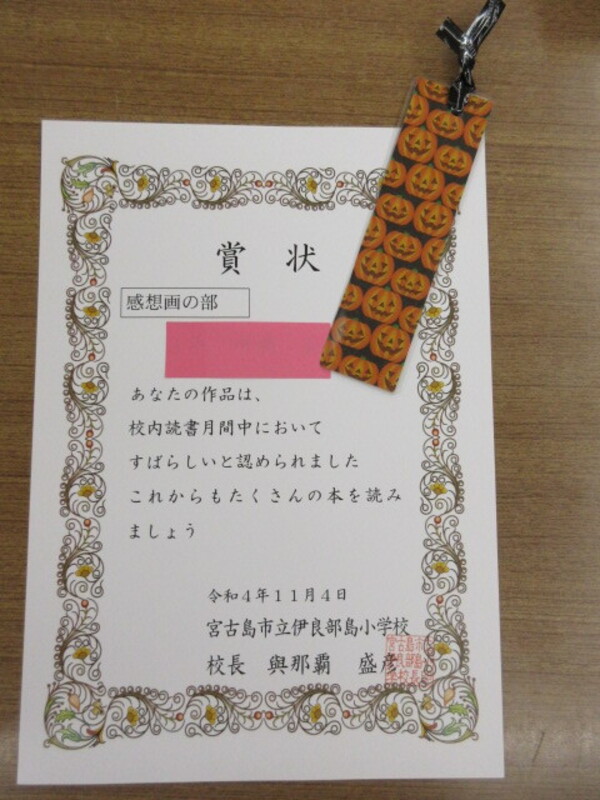 賞 状
感想画の部
あなたの作品は、
校内読書月間中において
すばらしいと認められました
これからもたくさんの本を読み
ましょう
令和4年11月4日
宮古島市立伊良部島小学校
校長 與那覇 盛彦